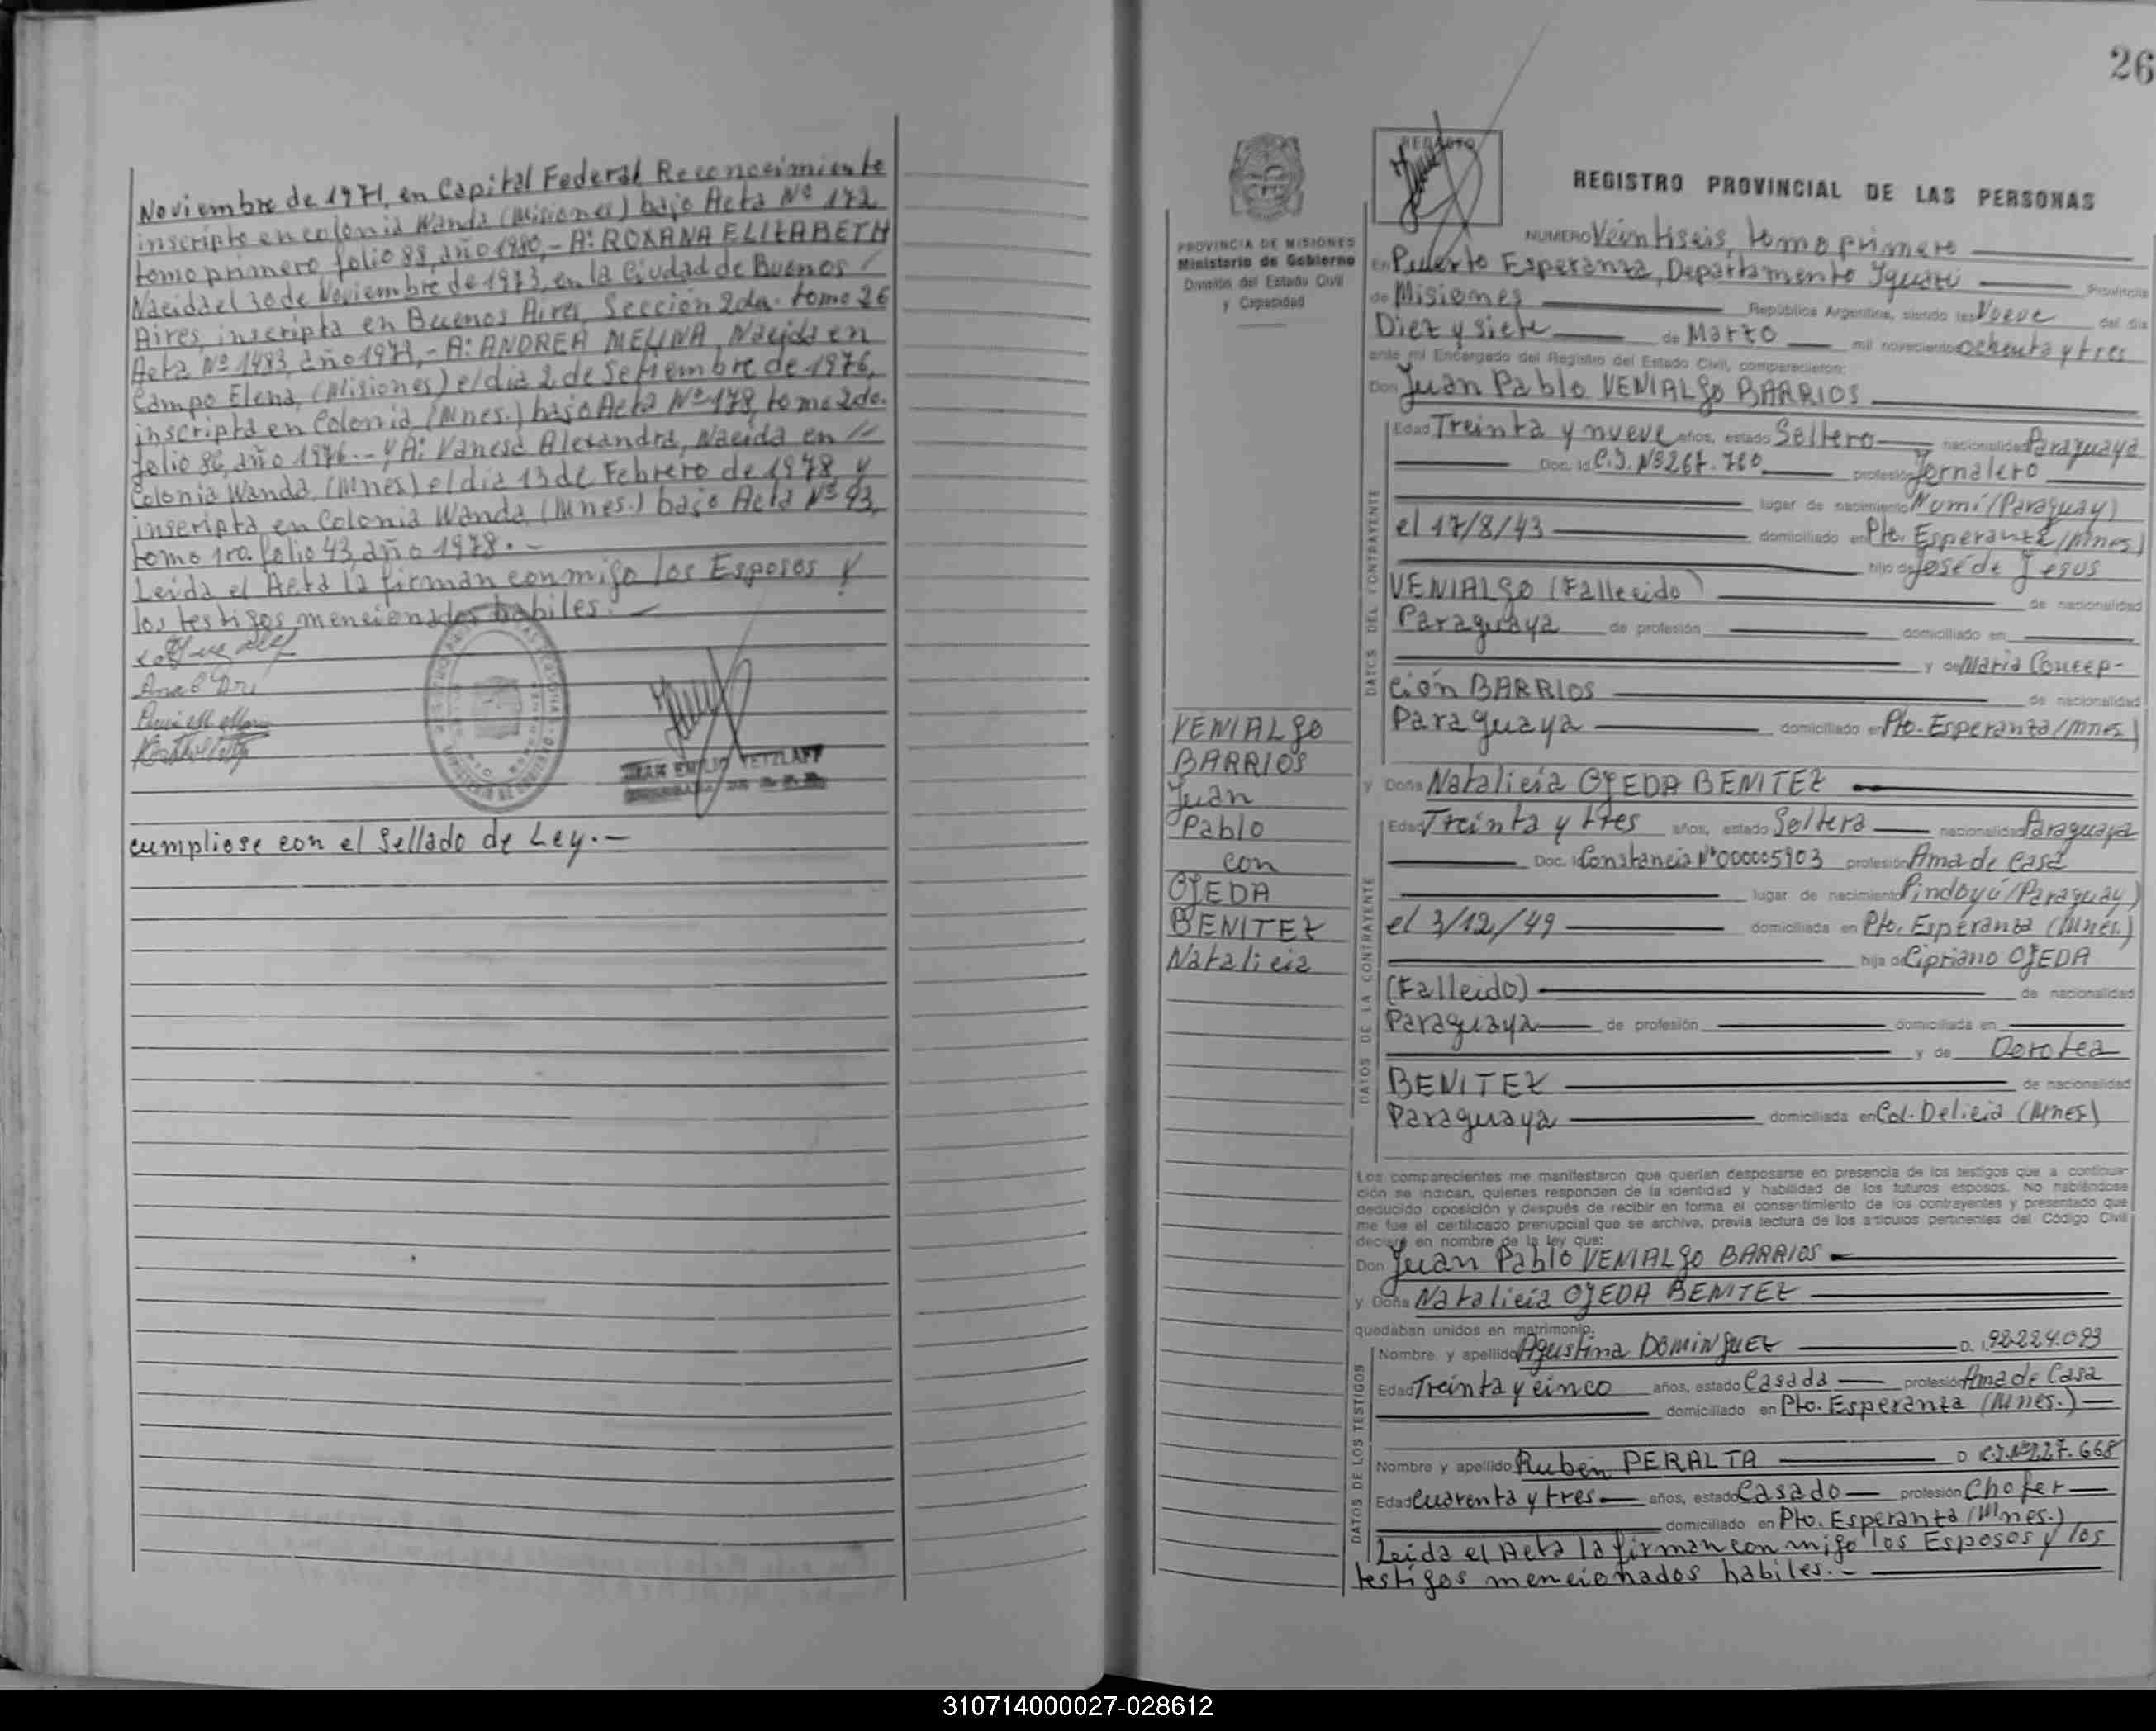 Noviembre de 1971, en Capital Federal Reconocimiento
inscripto en colonia Wanda (Misiones) bajo Acta Nº 172
tomo primero folio 88, año 1980,- A: ROXANA ELIZABETH
Nacida el 30 de Noviembre de 1973, en la Ciudad de Buenos
Aires, inscripta en Buenos Aires, Sección 2da. tomo 2E
Acta Nº 1483, año 1973,- A: ANDREA MELINA, Nacida en
Campo Elena, (Misiones) el día 2 de Setiembre de 1976,
inscripta en Colonia, (Mnes.) bajo Acta Nº 178, tomo 2do.
folio 86, año 1976.- y A: Vanesa Alexandra, Nacida en
Colonia Wanda, (Mnes) el día 13 de Febrero de 1978 y
inscripta en Colonia Wanda, (Mnes.) bajo Acta Nº 93,
tomo 1ro. folio 43, año 1978.-
Leida el Acta la firman conmigo los Esposos y
los testigos mencionados habiles.-
JUAN EMILIO TETZLAFF
cumpliose con el Sellado de Ley.-
26
PROVINCIA DE MISIONES
Ministerio de Gobierno
División del Estado Civil
y Capacidad
VENIALGO
BARRIOS
Juan
Pablo
con
OJEDA
BENITEZ
Natalicia
REGISTRO PROVINCIAL DE LAS PERSONAS
NUMERO Veintiseis, tomo primero
En Puerto Esperanza, Departamento Iguazú Provincia
de Misiones República Argentina, siendo las Nueve del día
Diez y siete de Marzo mil novecientos ochenta y tres
ante mí Encargado del Registro del Estado Civil, comparecieron:
Don Juan Pablo VENIALGO BARRIOS
DATOS DEL CONTRAYENTE
Edad Treinta y nueve años, estado Soltero nacionalidad Paraguaya
Doc. Id. C.I. Nº 267.760 profesión Jornalero
lugar de nacimiento Numí (Paraguay)
el 17/8/43 domiciliado en Pto. Esperanza (Mnes)
hijo de José de Jesus
VENIALGO (Fallecido) de nacionalidad
Paraguaya de profesión domiciliado en
y de Maria Concep-
ción BARRIOS de nacionalidad
Paraguaya domiciliado en Pto. Esperanza (Mnes)
y Doña Natalicia OJEDA BENITEZ
DATOS DE LA CONTRAYENTE
Edad Treinta y tres años, estado Soltera nacionalidad Paraguaya
Doc. I. Constancia Nº 000005903 profesión Ama de Casa
lugar de nacimiento Pindoyú (Paraguay)
el 3/12/49 domiciliada en Pto. Esperanza (Mnes.)
hija de Cipriano OJEDA
(Falleido) de nacionalidad
Paraguaya de profesión domiciliada en
y de Dorotea
BENITEZ de nacionalidad
Paraguaya domiciliada en Col. Delicia (Mnes)
Los comparecientes me manifestaron que querían desposarse en presencia de los testigos que a continua-
ción se indican, quienes responden de la identidad y habilidad de los futuros esposos. No habiéndose
deducido oposición y después de recibir en forma el consentimiento de los contrayentes y presentado que
me fue el certificado prenupcial que se archiva, previa lectura de los artículos pertinentes del Código Civil
declaré en nombre de la ley que:
Don Juan Pablo VENIALGO BARRIOS
y Doña Natalicia OJEDA BENITEZ
quedaban unidos en matrimonio.
DATOS DE LOS TESTIGOS
Nombre y apellido Agustina DOMINGUEZ D. I. 92.224.093
Edad Treinta y cinco años, estado Casada profesión Ama de Casa
domiciliado en Pto. Esperanza (Mnes.)
Nombre y apellido Ruben PERALTA D. C.I. Nº 227.668
Edad Cuarenta y tres años, estado Casado profesión Chofer
domiciliado en Pto. Esperanza (Mnes.)
Leida el Acta la firman conmigo los Esposos y los
testigos mencionados habiles.-
310714000027-028612